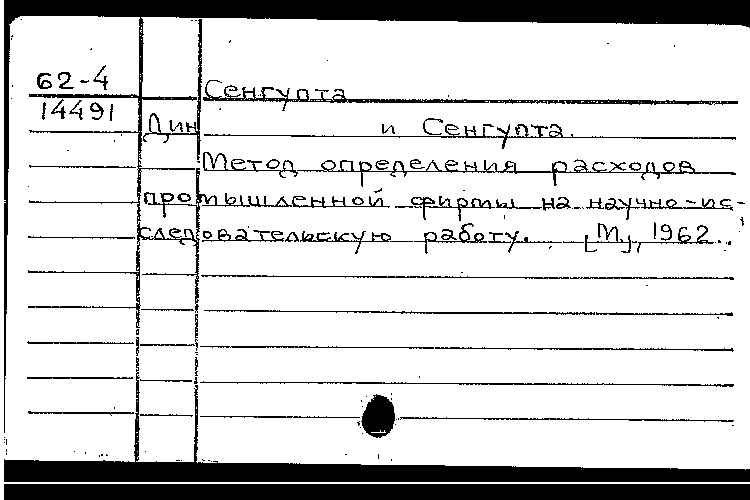 62-4
14491
Сенгупта
Дин и Сенгупта.
Метод определения расходов
промышленной фирмы на научно-ис-
следовательскую работу. [М], 1962.